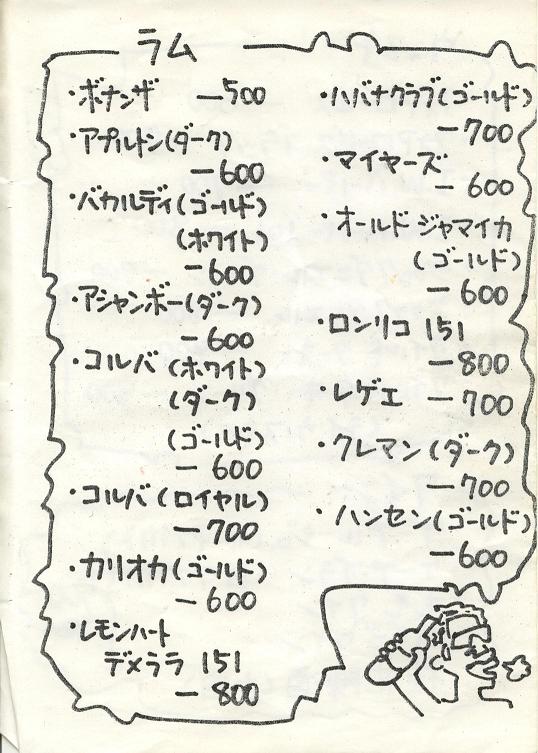 ラム
・ボナンザ ー500
・アプルトン(ダーク)
ー600
・バカルディ(ゴールド)
(ホワイト)
ー600
・アシャンボー(ダーク)
ー600
・コルバ(ホワイト)
(ダーク)
(ゴールド)
ー600
・コルバ(ロイヤル)
ー700
・カリオカ(ゴールド)
ー600
・レモンハート
デメララ 151
ー800
・ハバナクラブ(ゴールド)
ー700
・マイヤーズ
ー600
・オールド ジャマイカ
(ゴールド)
ー600
・ロンリコ 151
ー800
・レゲエ ー700
・クレマン(ダーク)
ー700
・ハンセン(ゴールド)
ー600